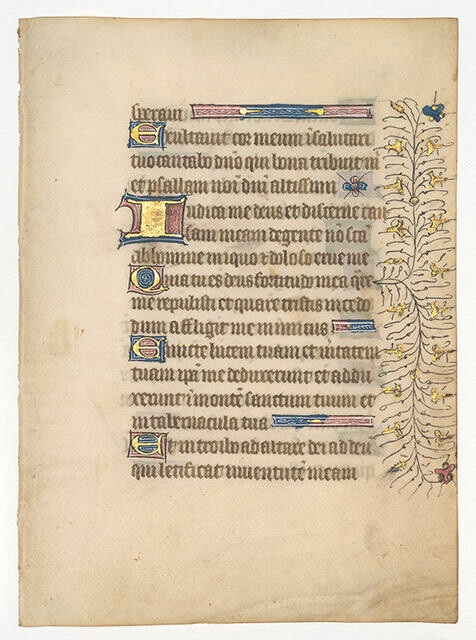 speraui
Exultauit cor meum ī salutari
tuo cantabo dño qui bona tribuit m̄
et psallam noī dn̄i altissimi
Iudica me deus et discerne cau
sam meam de gente nō scā
ab homine iniquo ⁊ doloso erue me
Quia tu es deus fortitudo mea q̄re
me repulisti et quare tristis incedo
dum affligit me inimicus
Emitte lucem tuam et ūitatem
tuam ip̄a me deduxerunt et addu
xerunt ī montē sanctum tuum et
in tabernacula tua
Et introibo ad altare dei ad deū
qui letificat iuuentutē meam